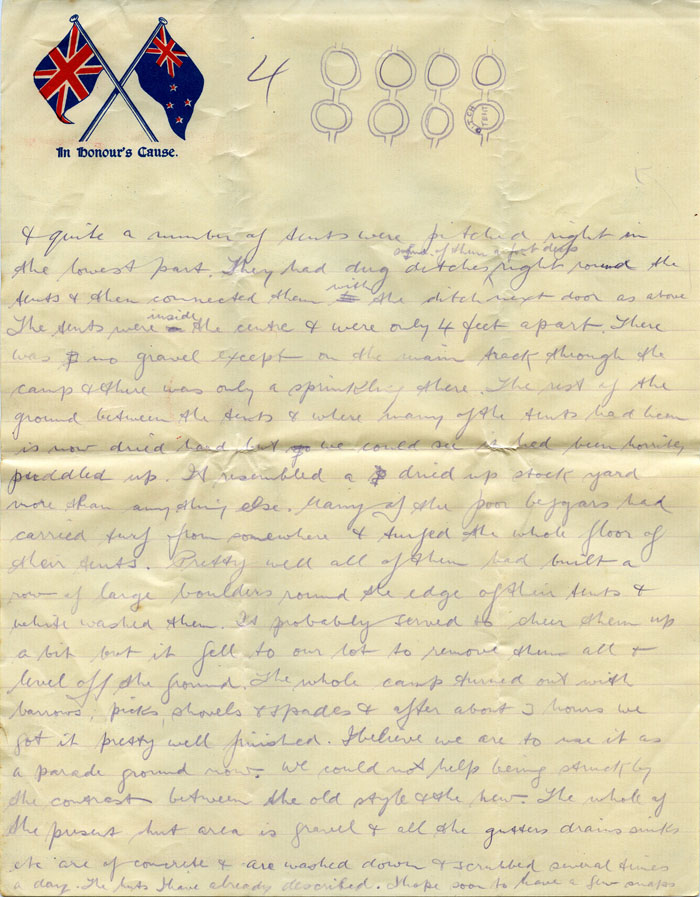 4
DITCH
TENT
In Honour's Cause.
& quite a number of tents were pitched right in
some of them a foot deep
the lowest part. They had dug ditches right round the
tents & then connected them with the ditch next door as above
The tents were inside the centre & were only 4 feet apart. There
was no gravel except on the main track through the
camp & there was only a sprinkling there. The rest of the
ground between the tents & where many of the tents had been
is now dried hard but we could see it had been horribly
puddled up. It resembled a dried up stock yard
more than anything else. Many of the poor beggars had
carried turf from somewhere & turfed the whole floor of
their tents. Pretty well all of them had built a
row of large boulders round the edge of their tents &
white washed them. It probably served to cheer them up
a bit but it fell to our lot to remove them all &
level off the ground. The whole camp turned out with
barrows, picks, shovels & spades & after about 3 hours we
got it pretty well finished. I believe we are to use it as
a parade ground now. We could not help being struck by
the contrast between the old style & the new. The whole of
the present hut area is gravel & all the gutters drains sinks
etc are of concrete & are washed down & scrubbed several times
a day. The huts I have already described. I hope soon to have a few snaps